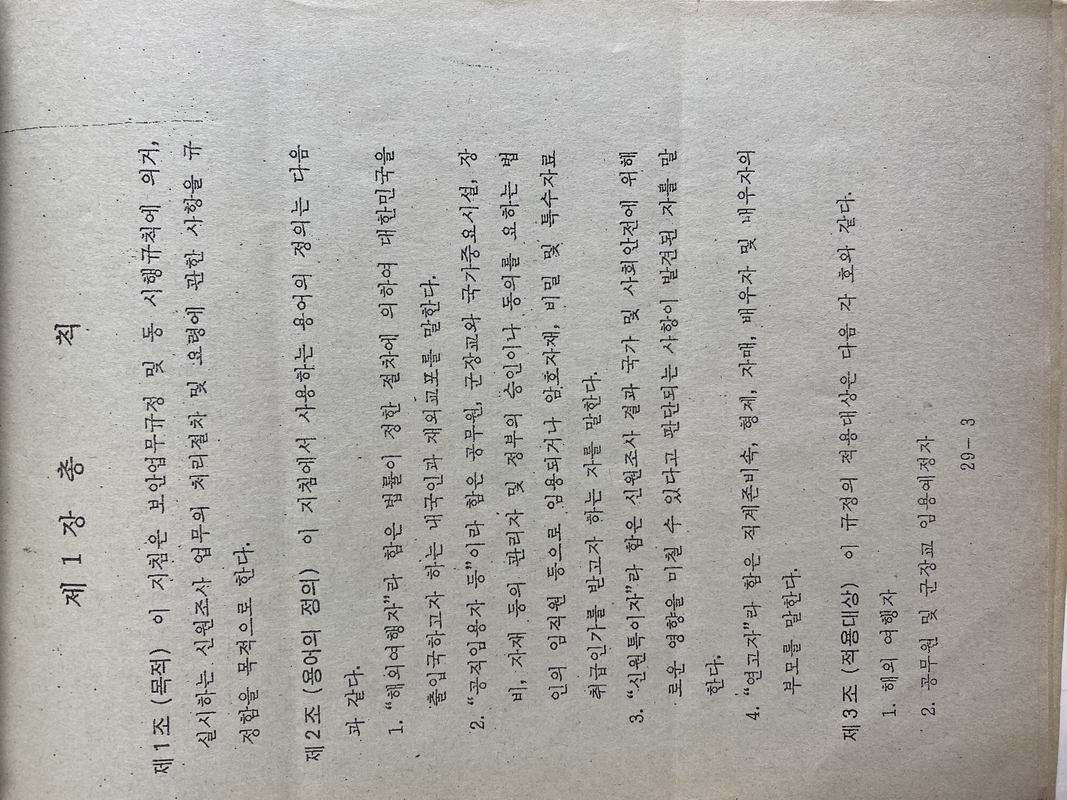 제 1 장 총 칙
제1조 (목적) 이 지침은 보안업무규정 및 동 시행규칙에 의거,
실시하는 신원조사 업무의 처리절차 및 요령에 관한 사항을 규
정함을 목적으로 한다.
제2조 (용어의 정의) 이 지침에서 사용하는 용어의 정의는 다음
과 같다.
1. “해외여행자”라 함은 법률이 정한 절차에 의하여 대한민국을
출입국하고자 하는 내국인과 재외교포를 말한다.
2. “공직임용자 등”이라 함은 공무원, 군장교와 국가중요시설, 장
비, 자재 등의 관리자 및 정부의 승인이나 동의를 요하는 법
인의 임직원 등으로 임용되거나 암호자재, 비밀 및 특수자료
취급인가를 받고자 하는 자를 말한다.
3. “신원특이자”라 함은 신원조사 결과 국가 및 사회안전에 위해
로운 영향을 미칠 수 있다고 판단되는 사항이 발견된 자를 말
한다.
4. “연고자”라 함은 직계존비속, 형제, 자매, 배우자 및 배우자의
부모를 말한다.
제3조 (적용대상) 이 규정의 적용대상은 다음 각 호와 같다.
1. 해외 여행자
2. 공무원 및 군장교 임용예정자
29- 3